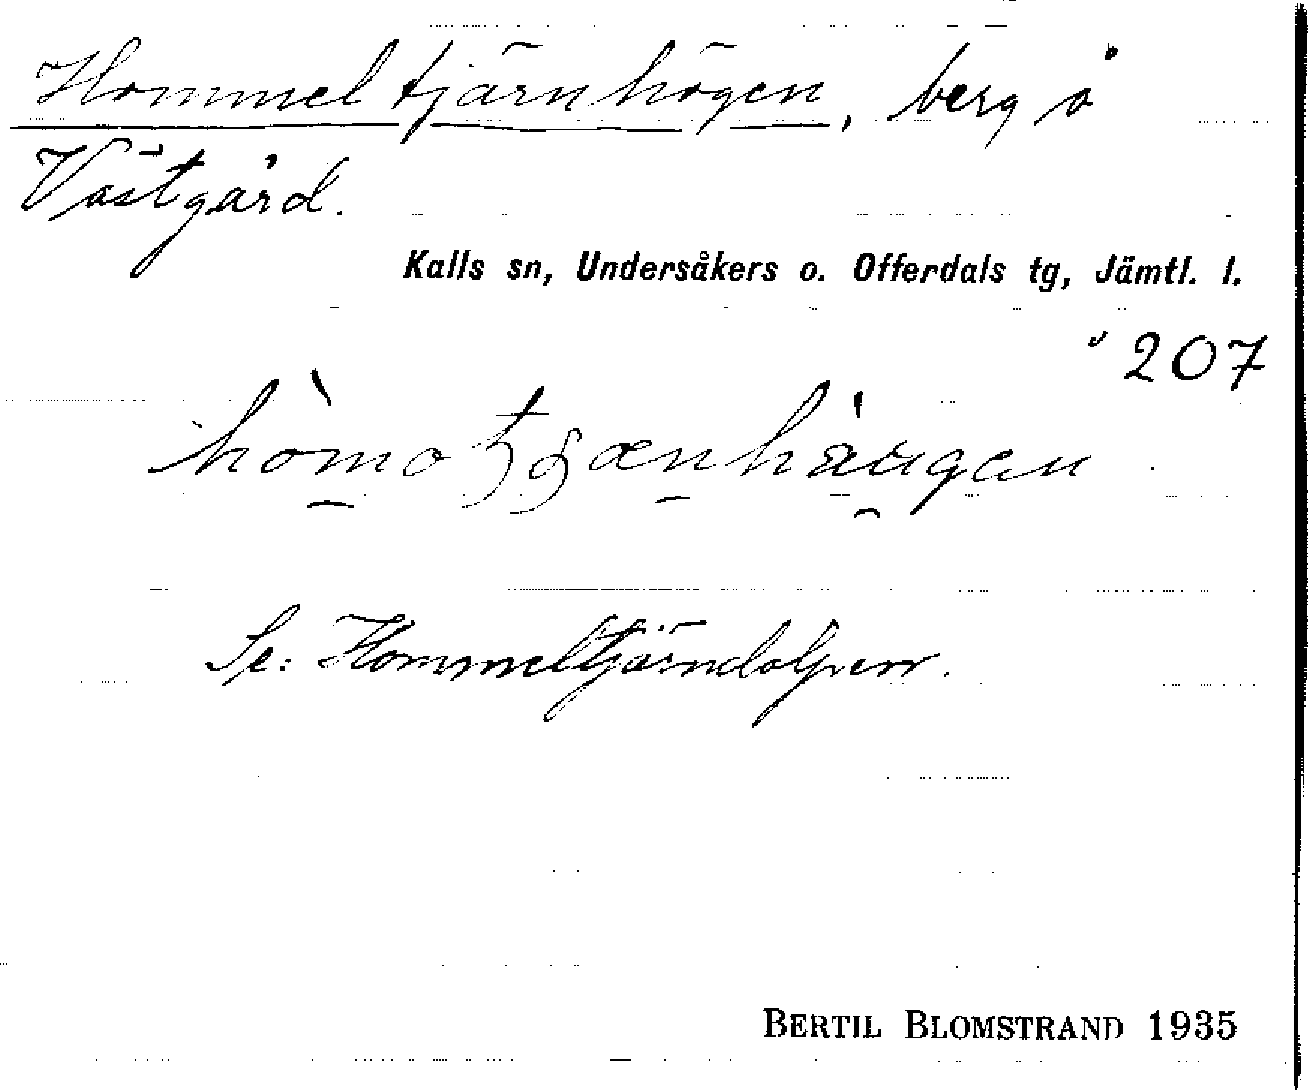 Hommeltjärnhögen, berg å
Västgård.
Kalls sn, Undersåkers o. Offerdals tg, Jämtl. l.
207
Se: Hommeltjärndalpen.
BERTIL BLOMSTRAND 1935